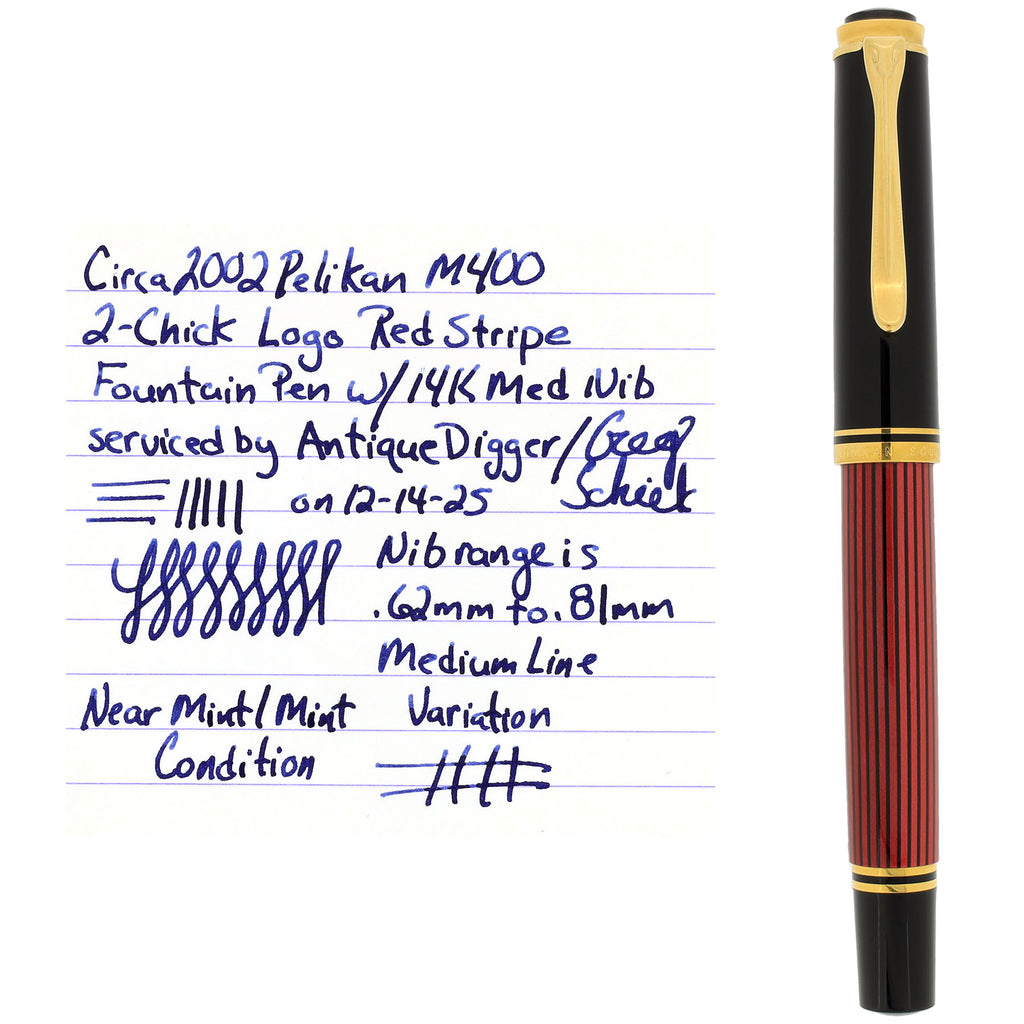 Circa 2002 Pelikan M400
2-Chick Logo Red Stripe
Fountain Pen w/ 14K Med Nib
serviced by AntiqueDigger/Greg
Schiek
on 12-14-25
Nib range is
.62mm to .81mm
Medium Line
Variation
Near Mint/Mint
Condition